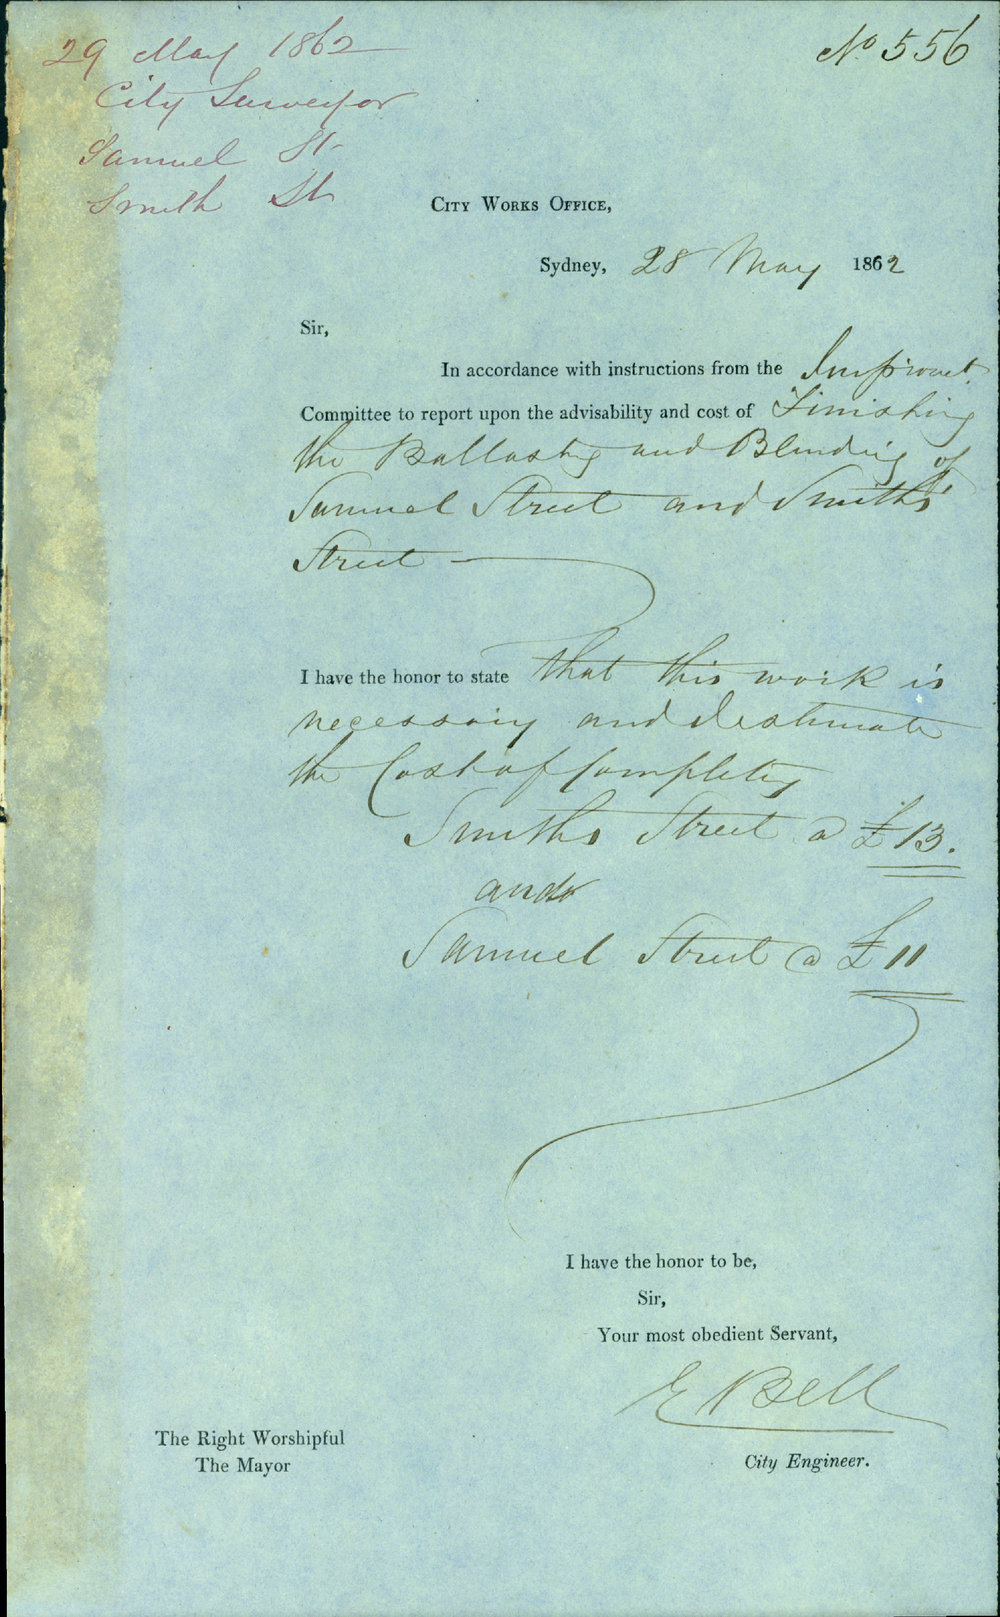 29 May 1862
City Surveyor
Samuel St
Smith St
No 556
City Works Office,
Sydney, 28 May 1862
Sir,
In accordance with instructions from the Improvemt.
Committee to report upon the advisability and cost of Finishing
the Ballasting and Blinding of
Samuel Street and Smiths
Street
I have the honor to state that this work is
necessary and I estimate
the Cost of Completing
Smiths Street @ £13.
and
Samuel Street @ £11
I have the honor to be,
Sir,
Your most obedient Servant,
E Bell
City Engineer.
The Right Worshipful
The Mayor